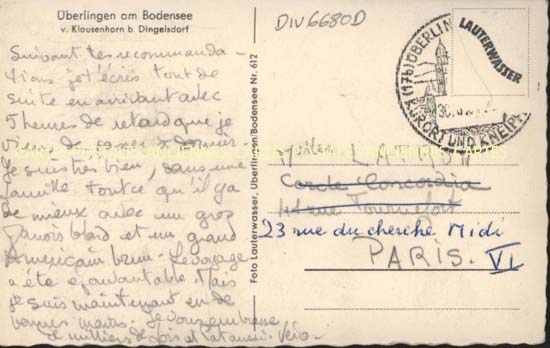 Überlingen am Bodensee
v. Klausenhorn b. Dingelsdorf
DIV6680D
Suivant tes recommanda-
tions je t'écris tout de
suite en arrivant avec
5 heures de retard que je
viens de passer à dormir.
Je suis très bien, dans une
famille tout ce qu'il y a
de mieux avec un gros
Danois blond et un grand
Américain brun. Le voyage
a été épouvantable. Mais
je suis maintenant en de
bonnes mains. Je vous embrasse
de milliers de fois et Pat aussi. Véro.
Foto Lauterwasser, Überlingen/Bodensee Nr. 612
(17b) ÜBERLIN
KURORT UND KNEIPP
30.
LAUTERWASSER
Cercle Concordia
rue Tournefort
23 rue du cherche Midi
PARIS. VI